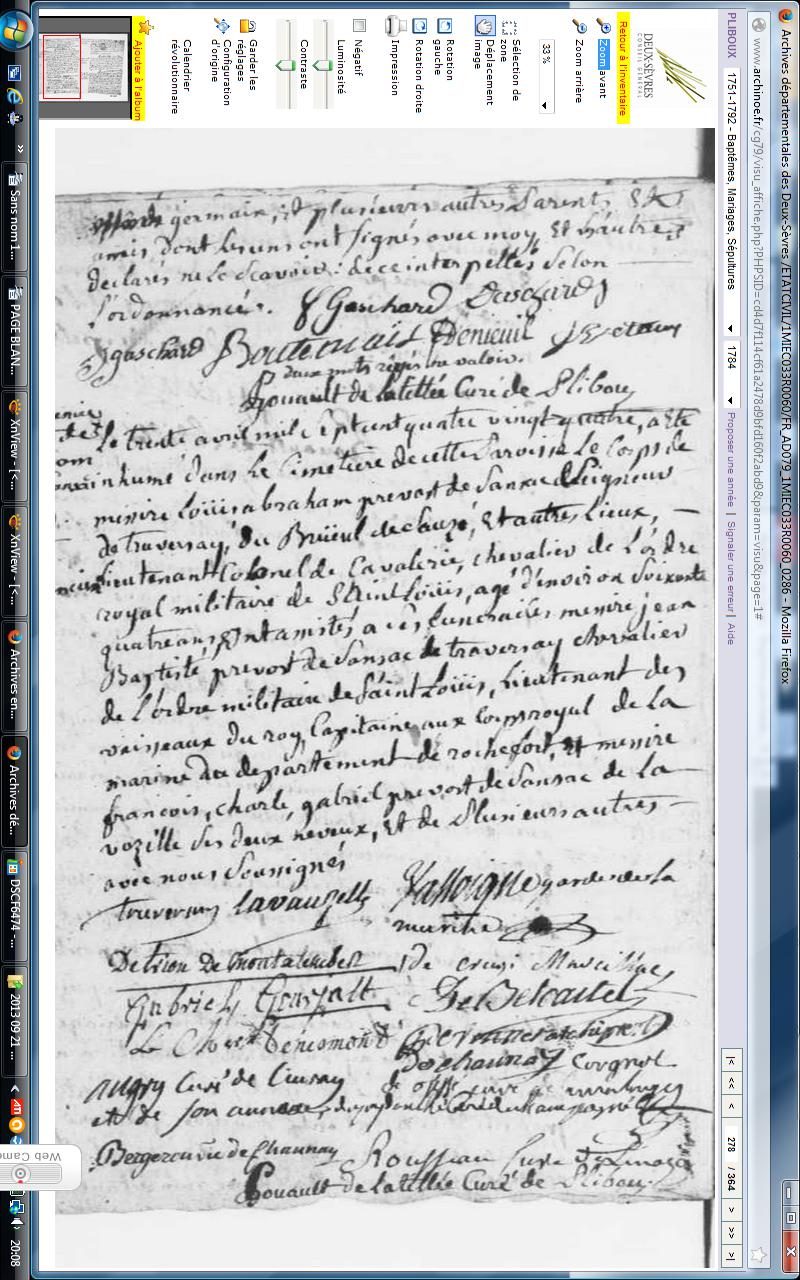 Archives départementales des Deux-Sèvres /ETATCIVIL/1MIEC033R0060/FR_AD079_1MIEC033R0060_0286 - Mozilla Firefox
www.archinoe.fr/cg79/visu_affiche.php?PHPSID=cd4d7f114cf61a2478d9bfd160f2abd98&param=visu&page=1#
PLIBOUX
1751-1792 - Baptêmes, Mariages, Sépultures
1784
Proposer une année | Signaler une erreur | Aide
|< << < 278 / 364 > >> >|
DEUX-SÈVRES
CONSEIL GÉNÉRAL
Retour à l'inventaire
Zoom avant
Zoom arrière
33 %
Sélection de zone
Déplacement image
Rotation gauche
Rotation droite
Impression
Négatif
Luminosité
Contraste
Garder les réglages
Configuration d'origine
Calendrier révolutionnaire
Ajouter à l'album
germain, et plusieurs autres Parents, Et
amis, dont les uns ont signés avec moy, Et les autres
declarés ne le scavoir: de ce interpellés selon
l'ordonnance.
Gaschard
gaschard Boutemais Denieuil
deux mots rayés
Rouault de latellée Curé de Pliboux
Le trente avril mil sept cent quatre vingt quatre, a eté
inhumé dans le Cimetiere de cette Paroisse Le Corps de
messire Loüis abraham prevost de Sansac Seigneur
de traversay, du Breüeul de clauzé, Et autres Lieux, —
Lieutenant Colonel de Cavalerie, chevalier de L'ordre
royal militaire de Saint Loüis, agé d'environ Soixante
quatre ans, ont assistés a ces funerailles messire jean
Baptiste, prevost de Sansac de traversay chevalier
de L'ordre militaire de Saint Loüis, Lieutenant des
vaisseaux du roy, Capitaine aux corps royal de La
marine du departement de rochefort, Et messire
francois, charle, gabriel prevost de Sansac de La
vozille ses deux neveux, Et de Plusieurs autres —
avec nous Soussignés
traversay Lavauzelle garde de la
marine
De cruzi Marcillac
Gabriel
Dechaunay Corgnol
augry Curé de
et de son annexe
Bergeron curé de Chaunay Rousseau Curé de Limaze
Rouault de latellée Curé de Pliboux
Sans nom 1...
PAGE BLAN...
XnView - [<...
XnView - [<...
Archives en...
Archives dé...
DSCF6474 -...
2013 09 21...
20:08
Web Came